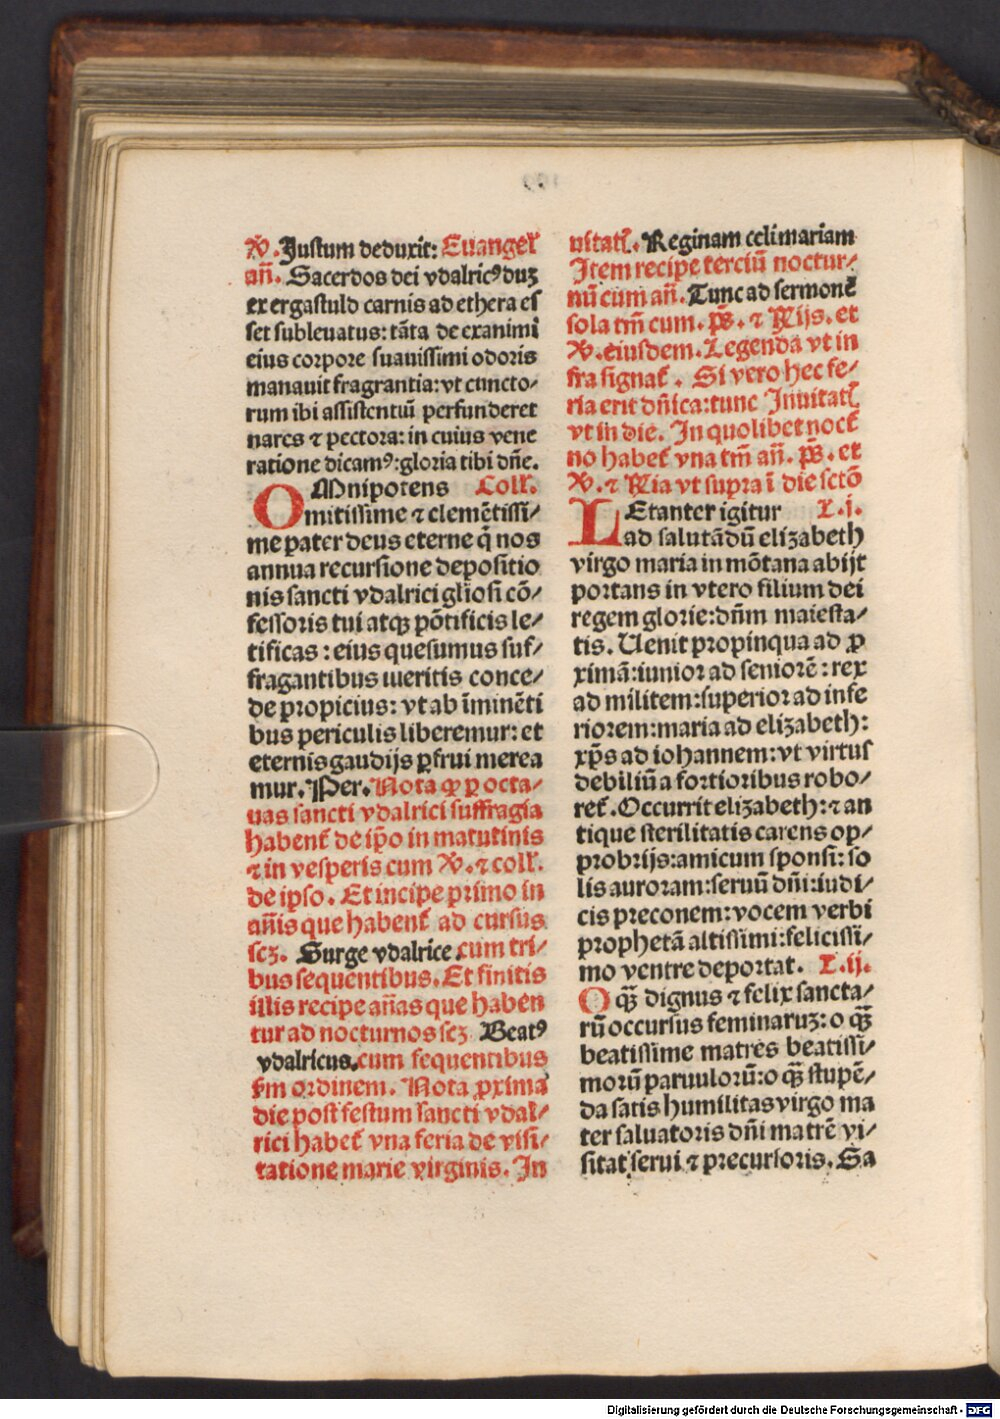 ℣. Justum deduxit: Euangeł
añ. Sacerdos dei vdalricꝰ duꝫ
ex ergastuld carnis ad ethera eſ
ſet ſubleuatus: tãta de exanimi
eius corpore ſuauiſſimi odoris
manauit fragrantia: vt cuncto⸗
rum ibi aſſiſtentiũ perfunderet
nares ⁊ pectora: in cuius vene
ratione dicamꝰ: gloria tibi dñe.
OMnipotens Coll̃.
mitiſſime ⁊ clemẽtiſſi⸗
me pater deus eterne q̃ nos
annua recurſione depoſitio
nis ſancti vdalrici gl̃ioſi cõ⸗
feſſoris tui atqꝫ põtificis le⸗
tificas: eius queſumus ſuf⸗
fragantibus meritis conce⸗
de propicius: vt ab ĩminẽti
bus periculis liberemur: et
eternis gaudijs ꝑfrui merea
mur. Per. Nota ꝙ ꝑ octa⸗
uas ſancti vdalrici ſuffragia
habent̃ de ip̃o in matutinis
⁊ in veſperis cum ℣. ⁊ coll̃.
de ipſo. Et incipe primo in
añis que habent̃ ad curſus
ſcꝫ. Surge vdalrice cum tri⸗
bus ſequentibus. Et finitis
illis recipe añas que haben
tur ad nocturnos ſcꝫ Beatꝰ
vdalricus. cum ſequentibus
ſm̃ ordinem. Nota ꝓxima
die poſt feſtum ſancti vdal⸗
rici habet̃ vna feria de viſi⸗
tatione marie virginis. In
uitatł. Reginam celi mariam
Item recipe terciũ noctur⸗
nũ cum añ. Tunc ad ſermonẽ
ſola tm̃ cum. p̃s. ⁊ Rijs. et
℣. eiuſdem. Legenda vt in
fra ſignat̃. Si vero hec fe⸗
ria erit dñica: tunc Inuitatł
vt in die. In quolibet noct̃
no habet̃ vna tm̃ añ. p̃s. et
℣. ⁊ Ria vt ſupra ĩ die ſctõ
LEtanter igitur L. j.
ad ſalutãdũ elizabeth
virgo maria in mõtana abijt
portans in vtero filium dei
regem glorie: dñm maieſta⸗
tis. Uenit propinqua ad ꝓ
ximã: iunior ad ſeniorẽ: rex
ad militem: ſuperior ad infe
riorem: maria ad elizabeth:
xp̃s ad iohannem: vt virtuſ
debiliũ a fortioribus robo⸗
ret̃. Occurrit elizabeth: ⁊ an
tique ſterilitatis carens op⸗
probrijs: amicum ſponſi: ſo
lis auroram: ſeruũ dñi: iudi⸗
cis preconem: vocem verbi
prophetã altiſſimi: feliciſſi⸗
mo ventre deportat. L. ij.
O q̃ꝫ dignus ⁊ felix ſancta⸗
rũ occurſus feminaruꝫ: o q̃ꝫ
beatiſſime matres beatiſſi⸗
morũ paruulorũ: o q̃ꝫ ſtupẽ⸗
da ſatis humilitas virgo ma
ter ſaluatoris dñi matrẽ vi⸗
ſitat ſerui ⁊ precurſoris. Sa
Digitalisierung gefördert durch die Deutsche Forschungsgemeinschaft - DFG